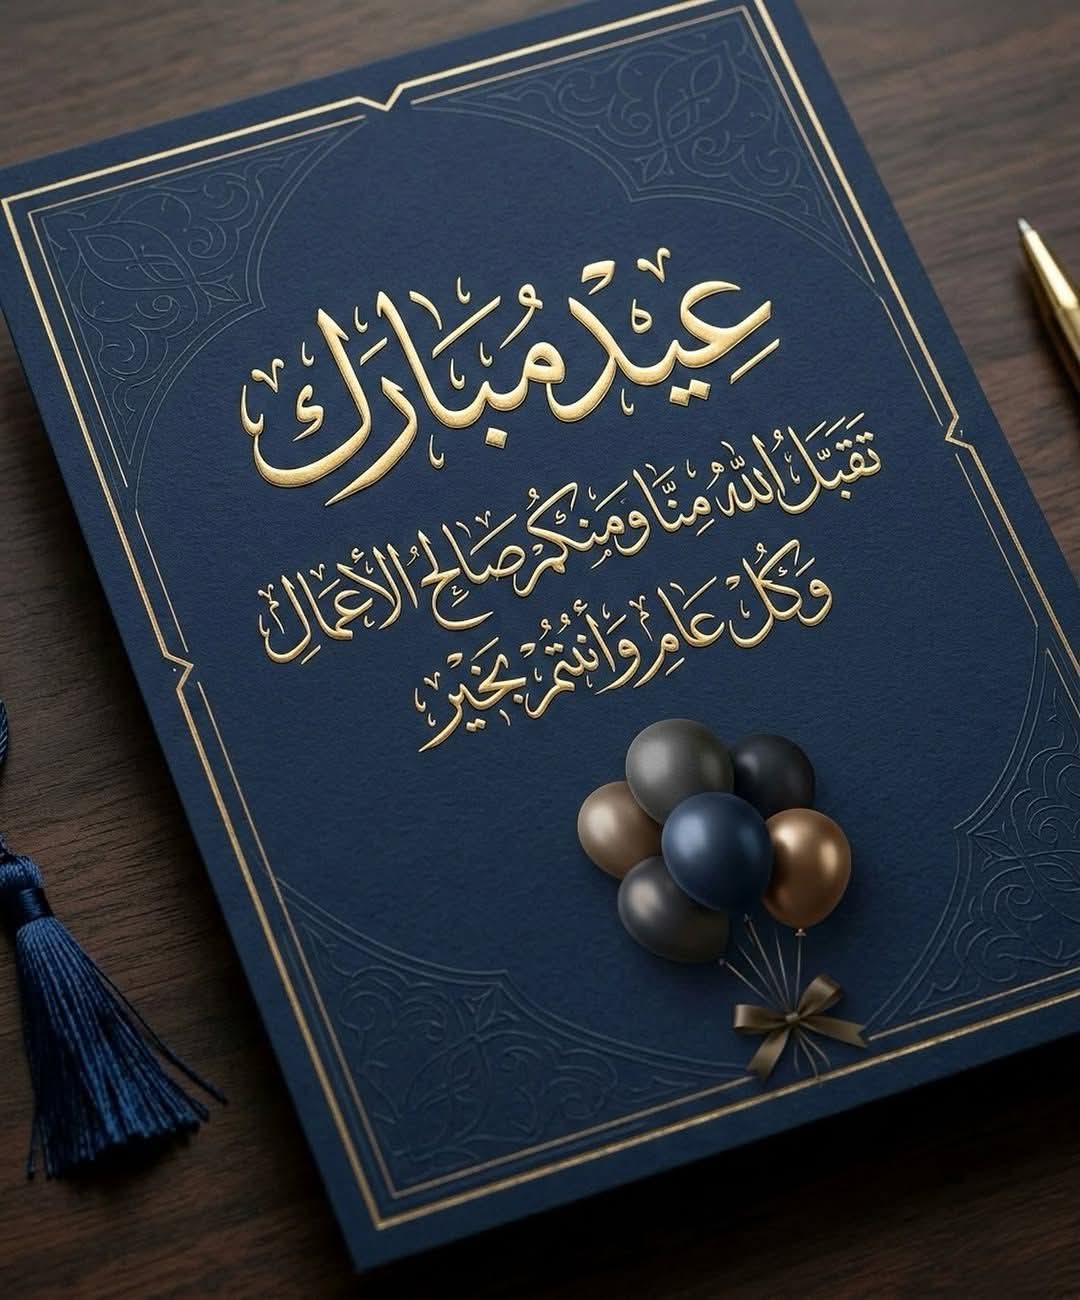 عِيدْ مُبَارَك
تَقَبَّلَ اللّٰهُ مِنَّا وَمَنكُمْ صَالِحُ الأَعمَالِ
وَكُلْ عَامِ وَأَنتُمْ بَخَيْر